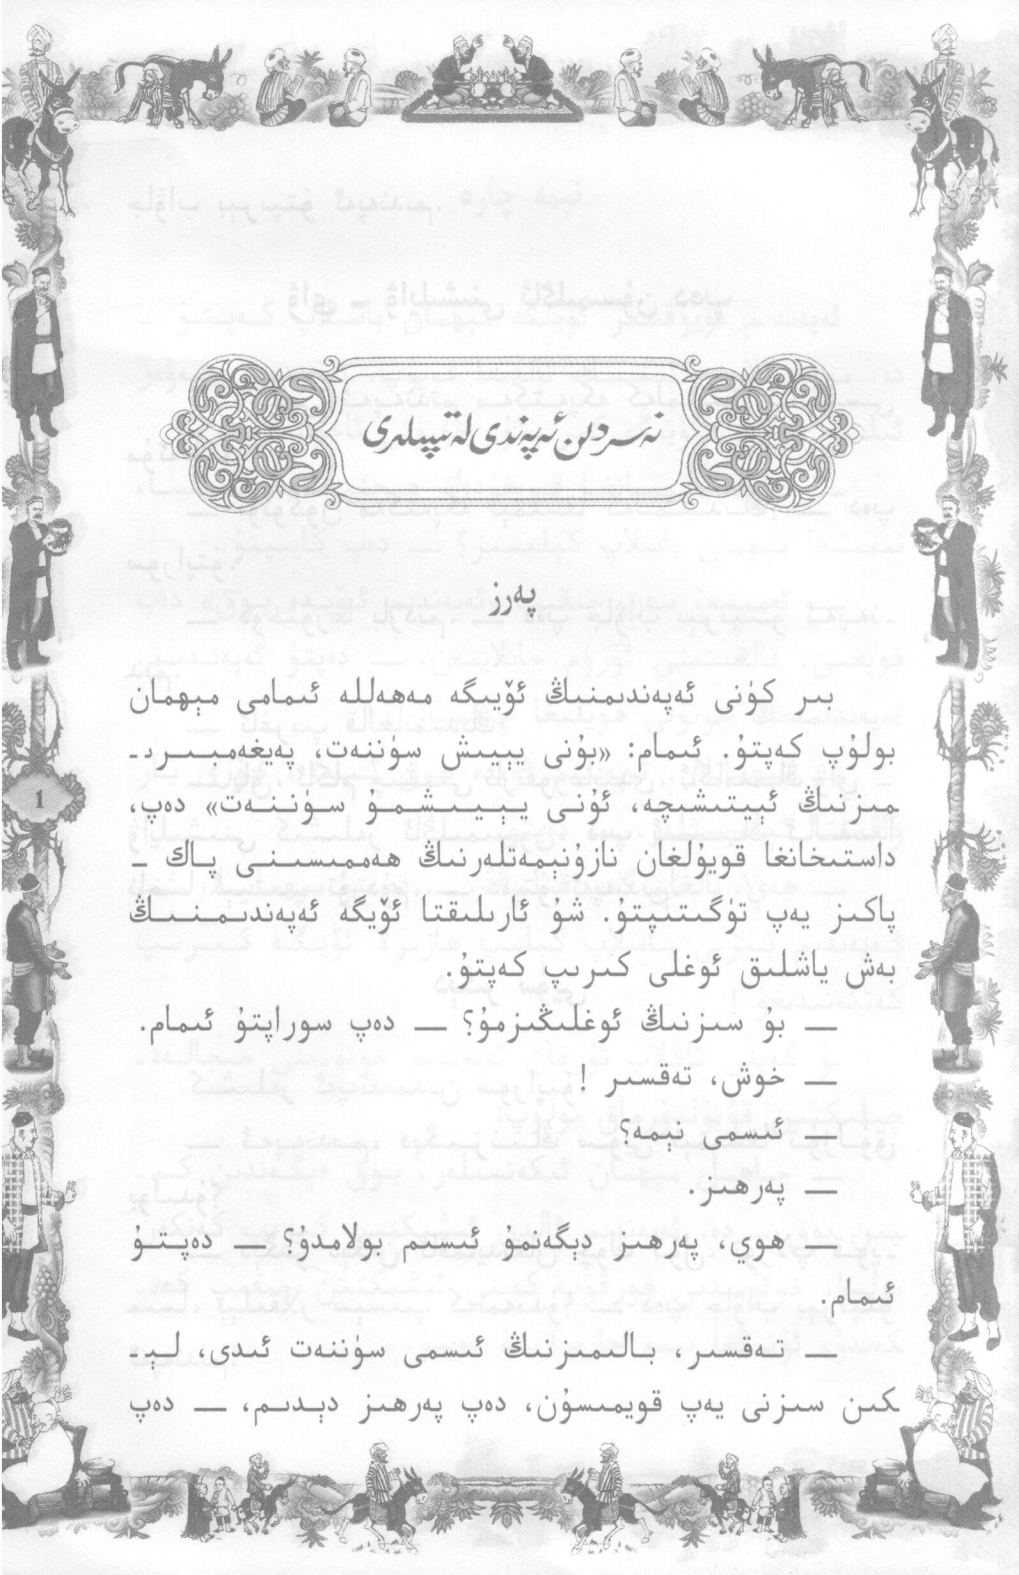 نەسىردىن ئەپەندى لەتىپىلىرى
پەرز
بىر كۈنى ئەپەندىمنىڭ ئۆيىگە مەھەللە ئىمامى مېھمان
بولۇپ كەپتۇ. ئىمام: «بۇنى يېيىش سۈننەت، پەيغەمبىرد-
مىزنىڭ ئېيتىشىچە، ئۇنى يېيىشمۇ سۈننەت» دەپ،
داستىخانغا قويۇلغان نازۇنېمەتلەرنىڭ ھەممىسىنى پاك -
پاكىز يەپ تۈگىتىپتۇ. شۇ ئارىلىقتا ئۆيگە ئەپەندىمنىڭ
بەش ياشلىق ئوغلى كىرىپ كەپتۇ.
— بۇ سىزنىڭ ئوغلىڭىزمۇ؟ — دەپ سوراپتۇ ئىمام.
— خوش، تەقسىر !
— ئىسمى نېمە؟
— پەرھىز.
— ھوي، پەرھىز دېگەنمۇ ئىسىم بولامدۇ؟ — دەپتۇ
ئىمام.
— تەقسىر، بالىمىزنىڭ ئىسمى سۈننەت ئىدى، لې-
كىن سىزنى يەپ قويمىسۇن، دەپ پەرھىز دېدىم، — دەپ
1